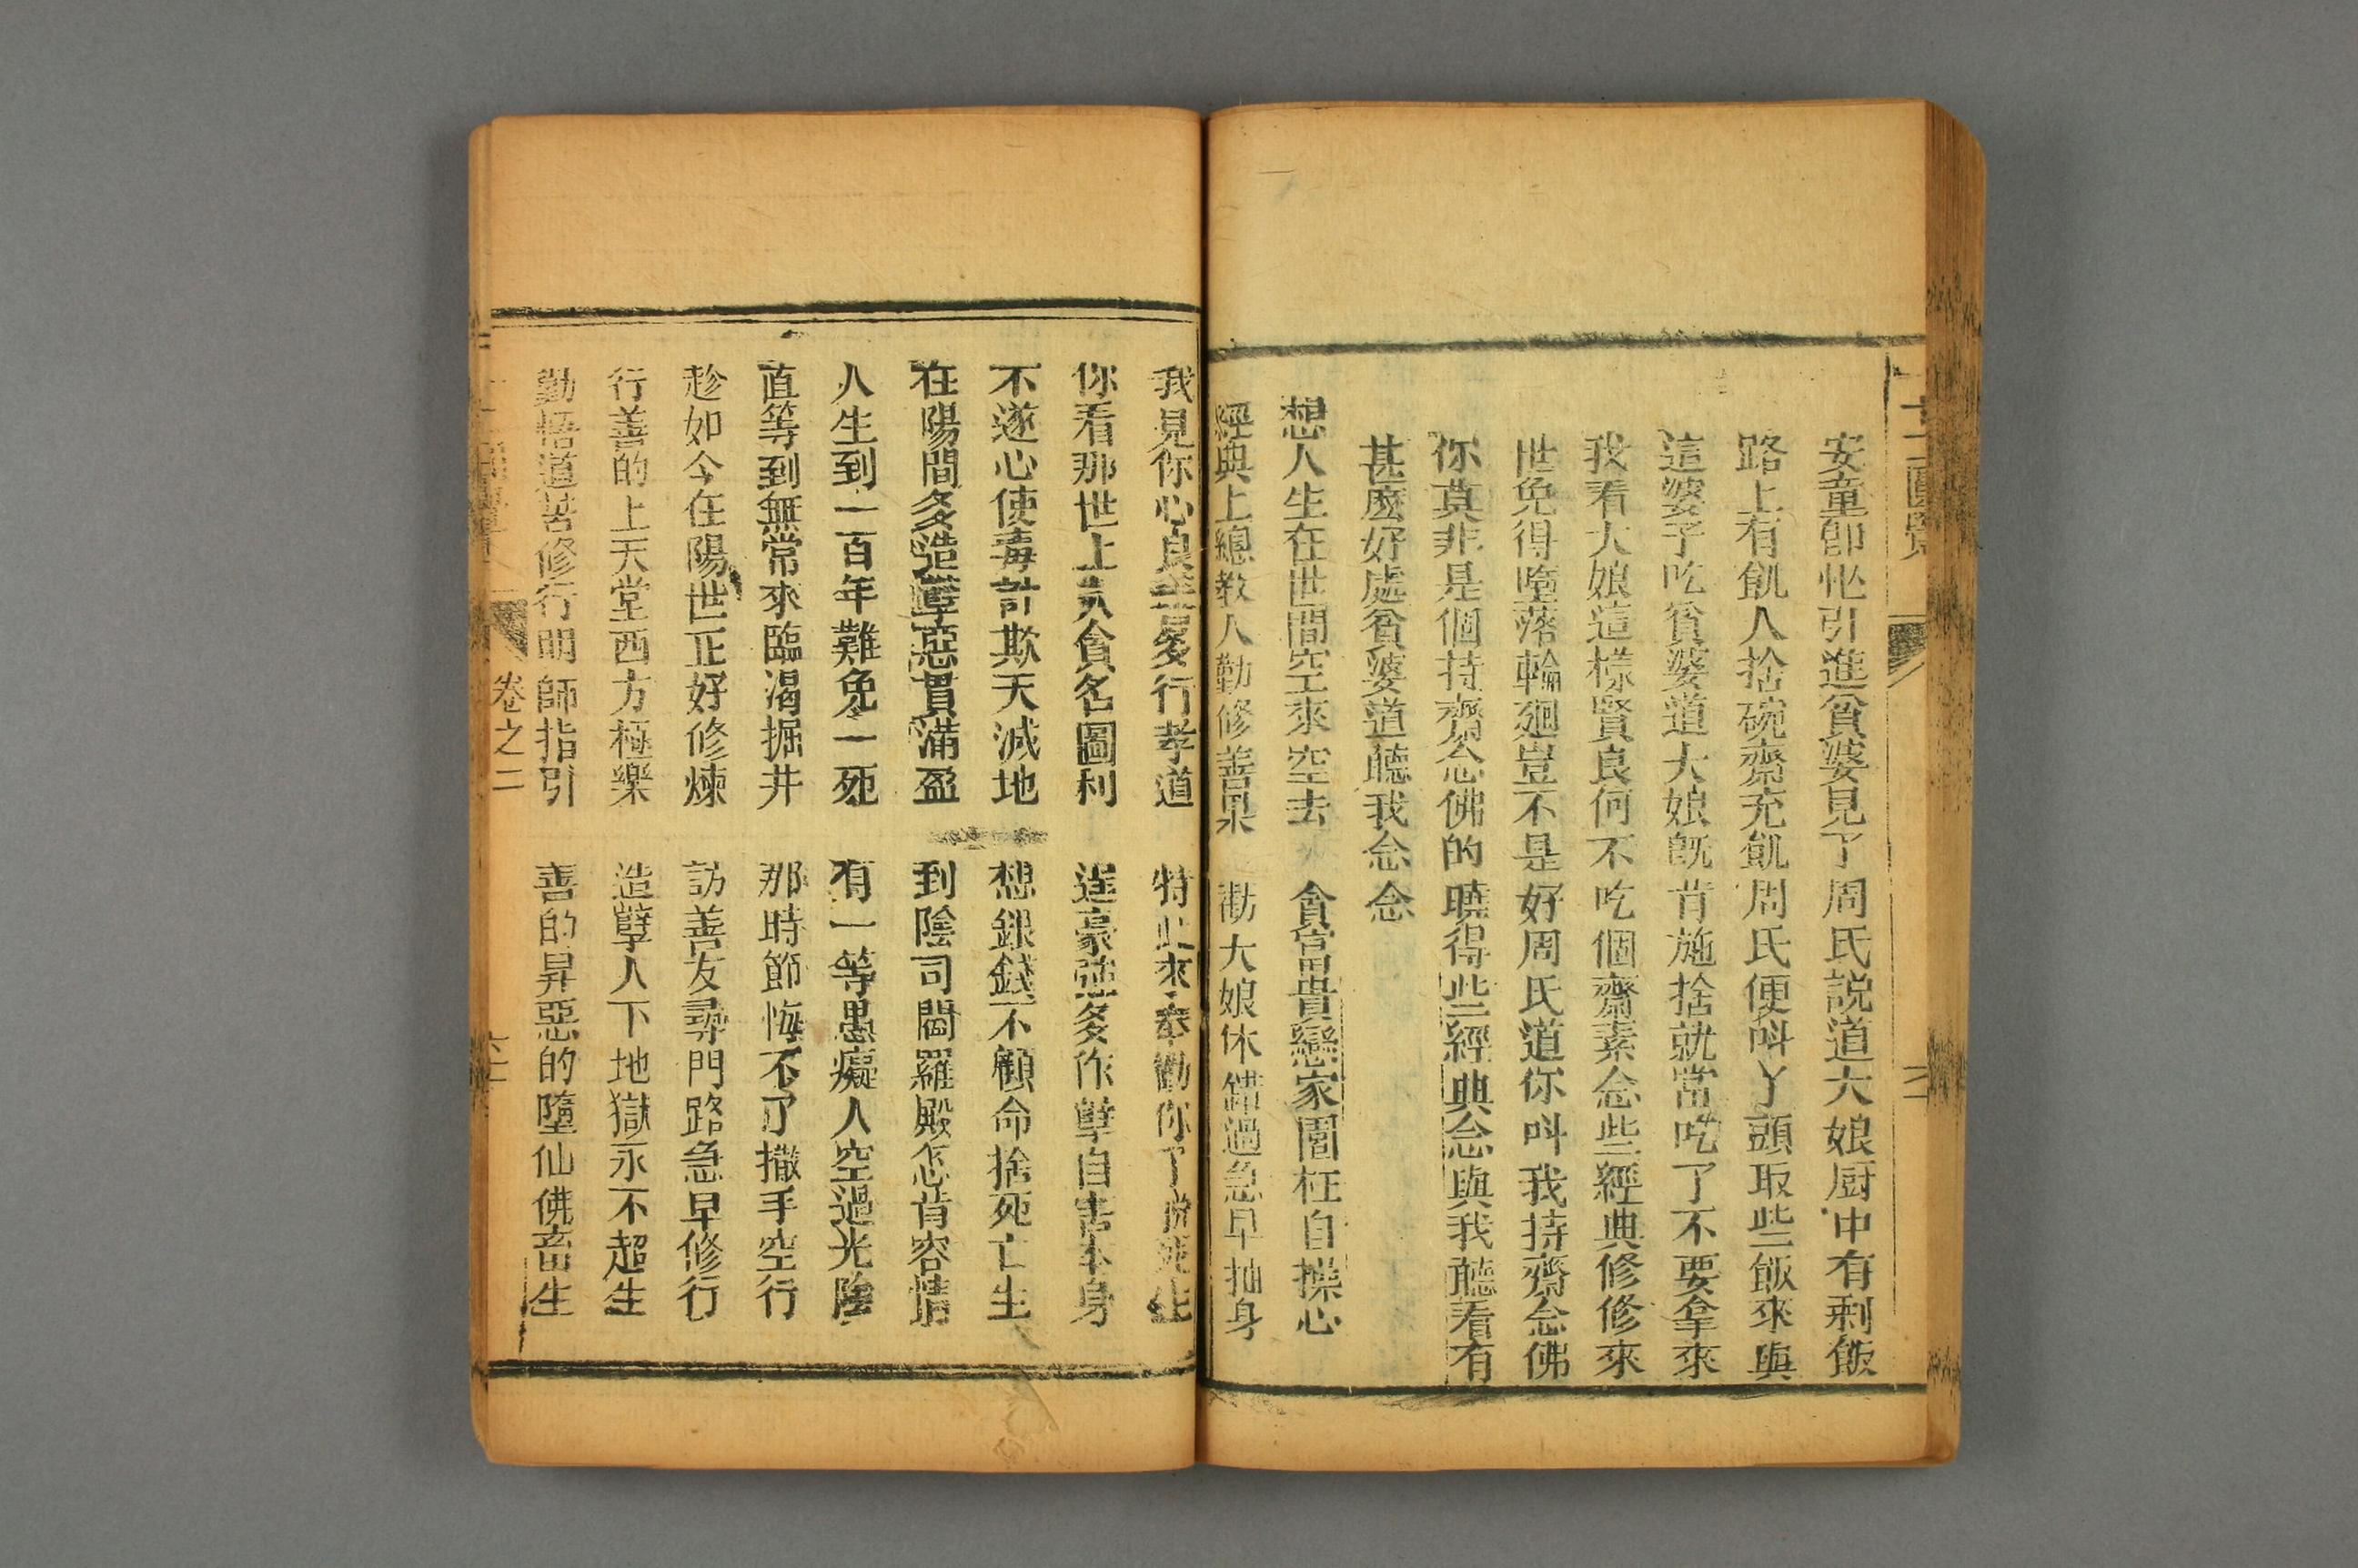 安童卽忙引進貧婆見了周氏説道大娘厨中有剩飯
路上有飢人捨碗齋充飢周氏便呌丫頭取些飯來與
這婆子吃貧婆道大娘旣肯施捨就當吃了不要拿來
我看大娘這樣賢良何不吃個齋素念些經典修修來
世免得墮落輪廻豈不是好周氏道你呌我持齋念佛
你莫非是個持齋念佛的曉得些經典念與我聽看有
甚麽好處貧婆道聽我念念
想人生在世間空來空去 貪富貴戀家園枉自操心
經典上總教人勤修善果 勸大娘休錯過急早抽身
我見你心良善愛行孝道 特此來奉勸你了
你看那世上人貪名圖利 逞豪強多作孽自害本身
不遂心使毒計欺天滅地 想銀錢不顧命捨死亡生
在陽間多造孽惡貫滿盈 到陰司閻羅殿怎肯容情
人生到一百年難免一死 有一等愚癡人空過光陰
直等到無常來臨渴掘井 那時節悔不了撒手空行
趁如今在陽世正好修煉 訪善友尋門路急早修行
行善的上天堂西方極樂 造孽人下地獄永不超生
勤悟道苦修行明師指引 善的昇惡的墮仙佛畜生
卷之二